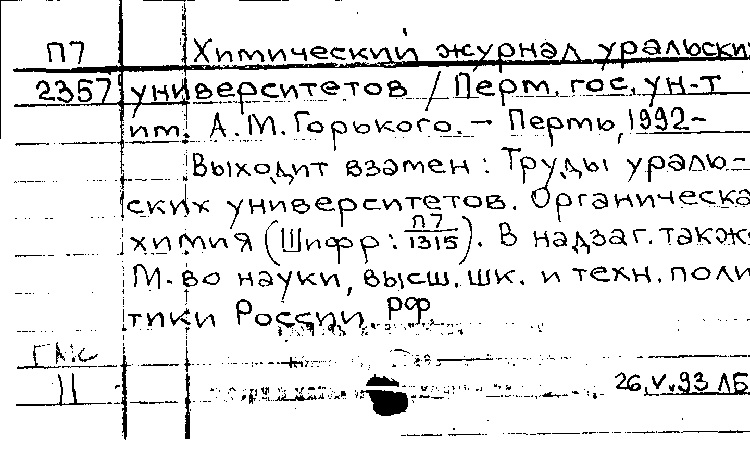 П7 Химический журнал уральски
2357 университетов / Перм. гос. ун-т
им. А.М.Горького. – Пермь, 1992–
Выходит взамен: Труды ураль-
ских университетов. Органическа
химия (Шифр: П7/1315). В надзаг. такж
М-во науки, высш. шк. и техн. поли
тики России РФ.
11 26.V.93 ЛБ